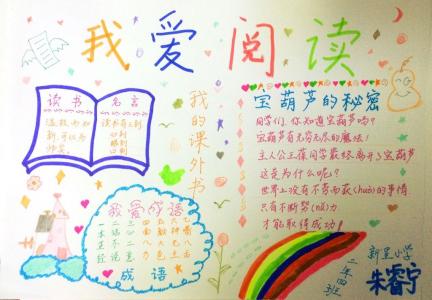 我爱阅读
读书 名言
温故而知
新,可以为
师矣。
读书有三到
眼到
口到
我的课外书
宝葫芦的秘密
同学们,你知道宝葫芦吗?
宝葫芦有无穷无尽的魔法!
主人公王葆同学最终离开了宝葫芦
这是为什么呢?
世界上没有不劳而获(huò)的事情
只有不断努(nǔ)力
才能取得成功!
我爱成语
一本正经
成语
新星小学
二年四班
朱睿宁